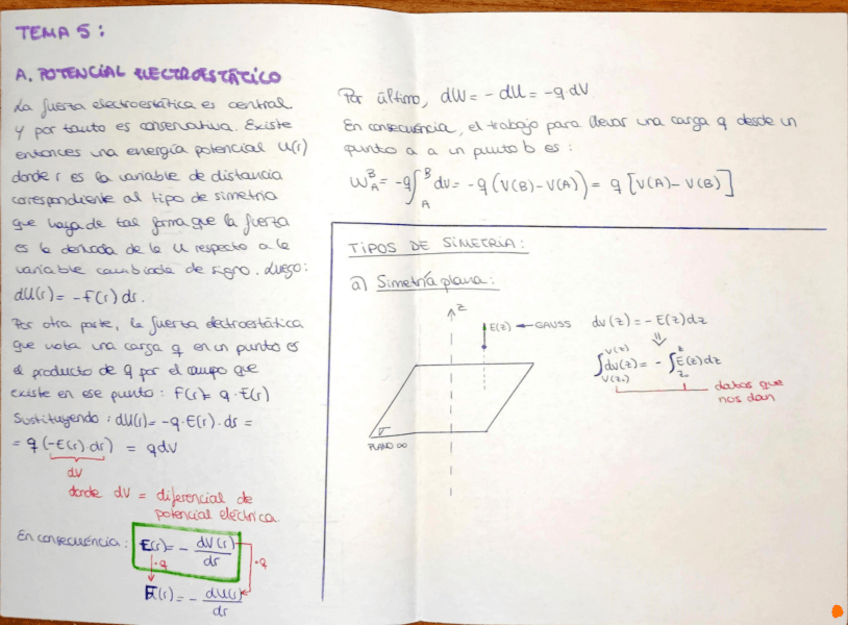 TEMA 5:
A. POTENCIAL ELECTROESTÁTICO
La fuerza electroestática es central
y por tanto es conservativa. Existe
entonces una energía potencial U(r)
donde r es la variable de distancia
correspondiente al tipo de simetría
que haya de tal forma que la fuerza
es la derivada de la U respecto a la
variable cambiada de signo. Luego:
dU(r) = -F(r) dr.
Por otra parte, la fuerza electroestática
que nota una carga q en un punto es
el producto de q por el campo que
existe en ese punto: F(r) = q · E(r)
Sustituyendo: dU(r) = -q · E(r) · dr =
= q (-E(r) · dr) = q dV
dV
donde dV = diferencial de
potencial eléctrica.
En consecuencia: E(r) = - dV(r)/dr
·q ·q
F(r) = - dU(r)/dr
Por último, dW = - dU = -q dV
En consecuencia, el trabajo para llevar una carga q desde un
punto a a un punto b es:
W_A^B = -q ∫_A^B dv = -q (V(B) - V(A)) = q [V(A) - V(B)]
TIPOS DE SIMETRIA:
a) Simetría plana:
z
E(z) ← GAUSS
PLANO ∞
dv(z) = - E(z) dz
⇓
∫_{V(z₀)}^{V(z)} dv(z) = - ∫_{z₀}^{z} E(z) dz
datos que
nos dan